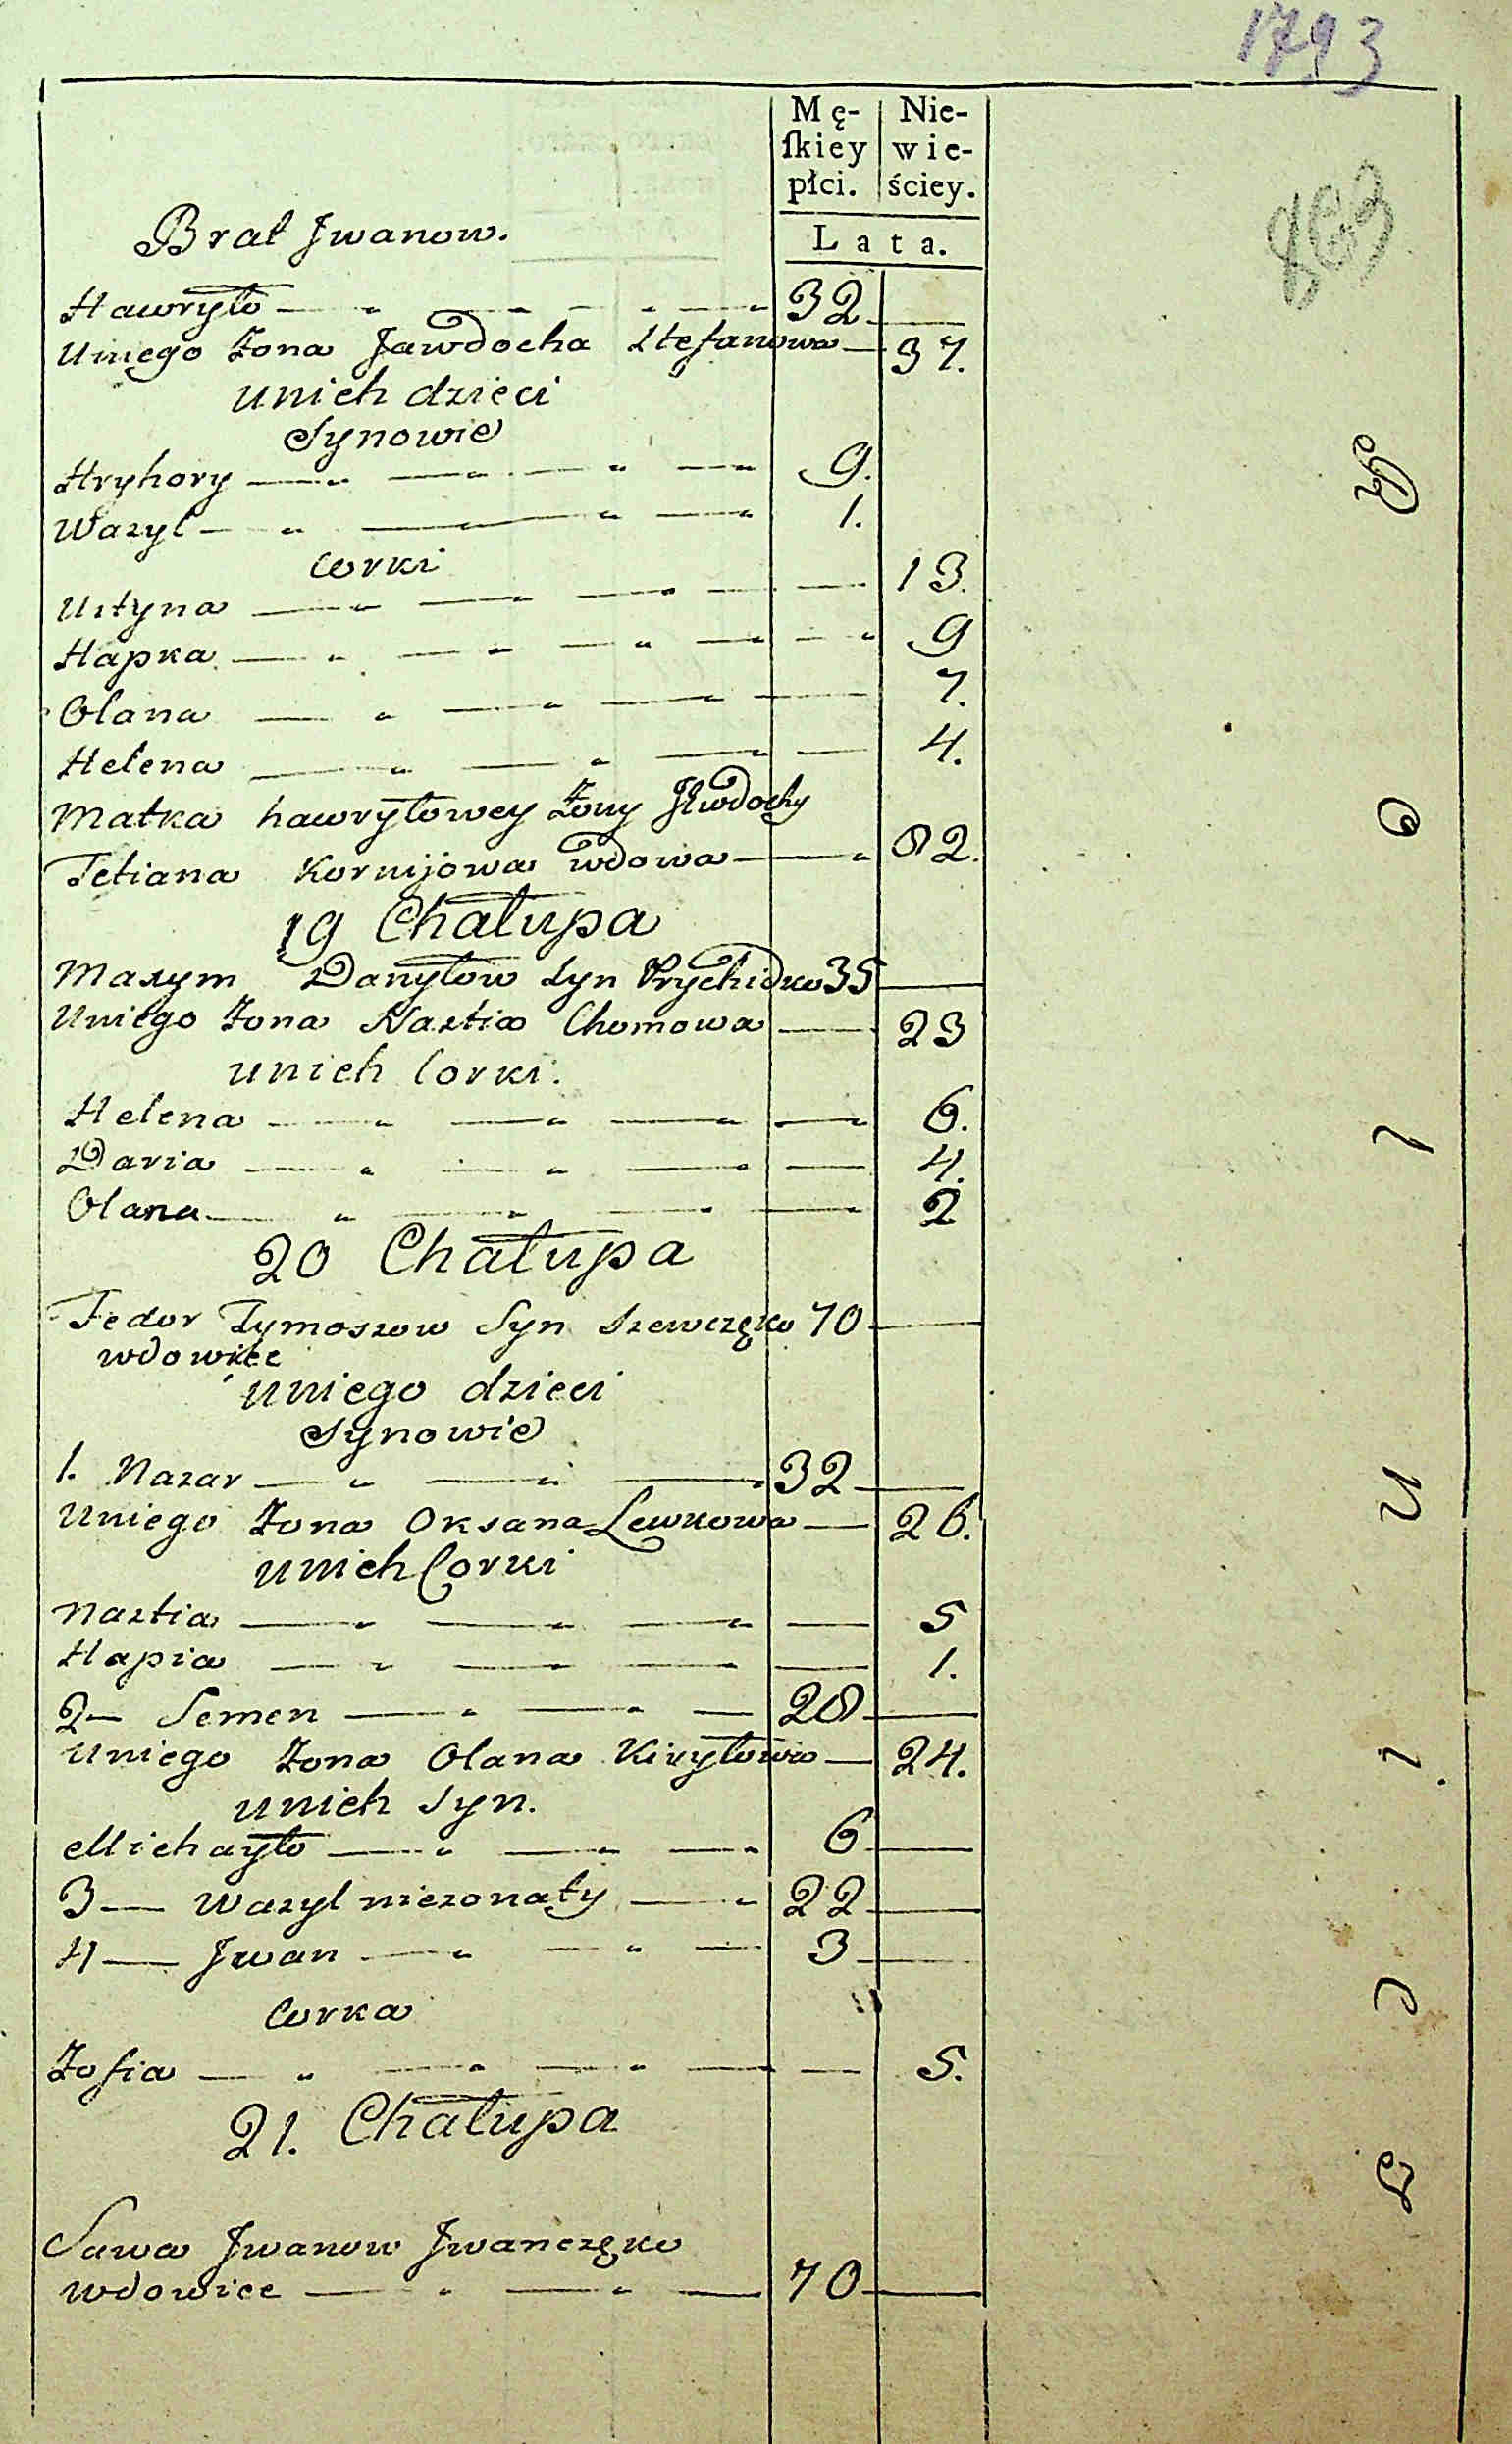 1793
Mę- Nie-
ſkiey wie-
płci. ściey.
Lata.
Brat Jwanow.
Hawryło 32
Uniego Zona Jawdocha Stefanowa 37.
unich dzieci
Synowie
Hryhory 9.
Wasyl 1.
Corki
Ustyna 13.
Hapka 9
Olana 7.
Helena 4.
Matka hawryłowey Zony Jiwdochy
Tetiana Kornijowa wdowa 82.
19 Chałupa
Maxym Danyłow Syn Prychidko 35
Uniego Zona Nastia Chomowa 23
unich Corki.
Helena 6.
Daria 4.
Olana 2
20 Chałupa
Fedor Tymoszow Syn Szewczęko 70
wdowiec
uniego dzieci
Synowie
1. Nazar 32
Uniego Zona Oksana Lewkowa 26.
unich Corki
Nastia 5
Hapia 1.
2 Semen 28
Uniego Zona Olana Kiryłowa 24.
unich Syn.
Michayło 6
3 Wasyl niezonaty 22
4 Jwan 3
Corka
Zofia 5.
21. Chałupa
Sawa Jwanow Jwanczęko
wdowiec 70